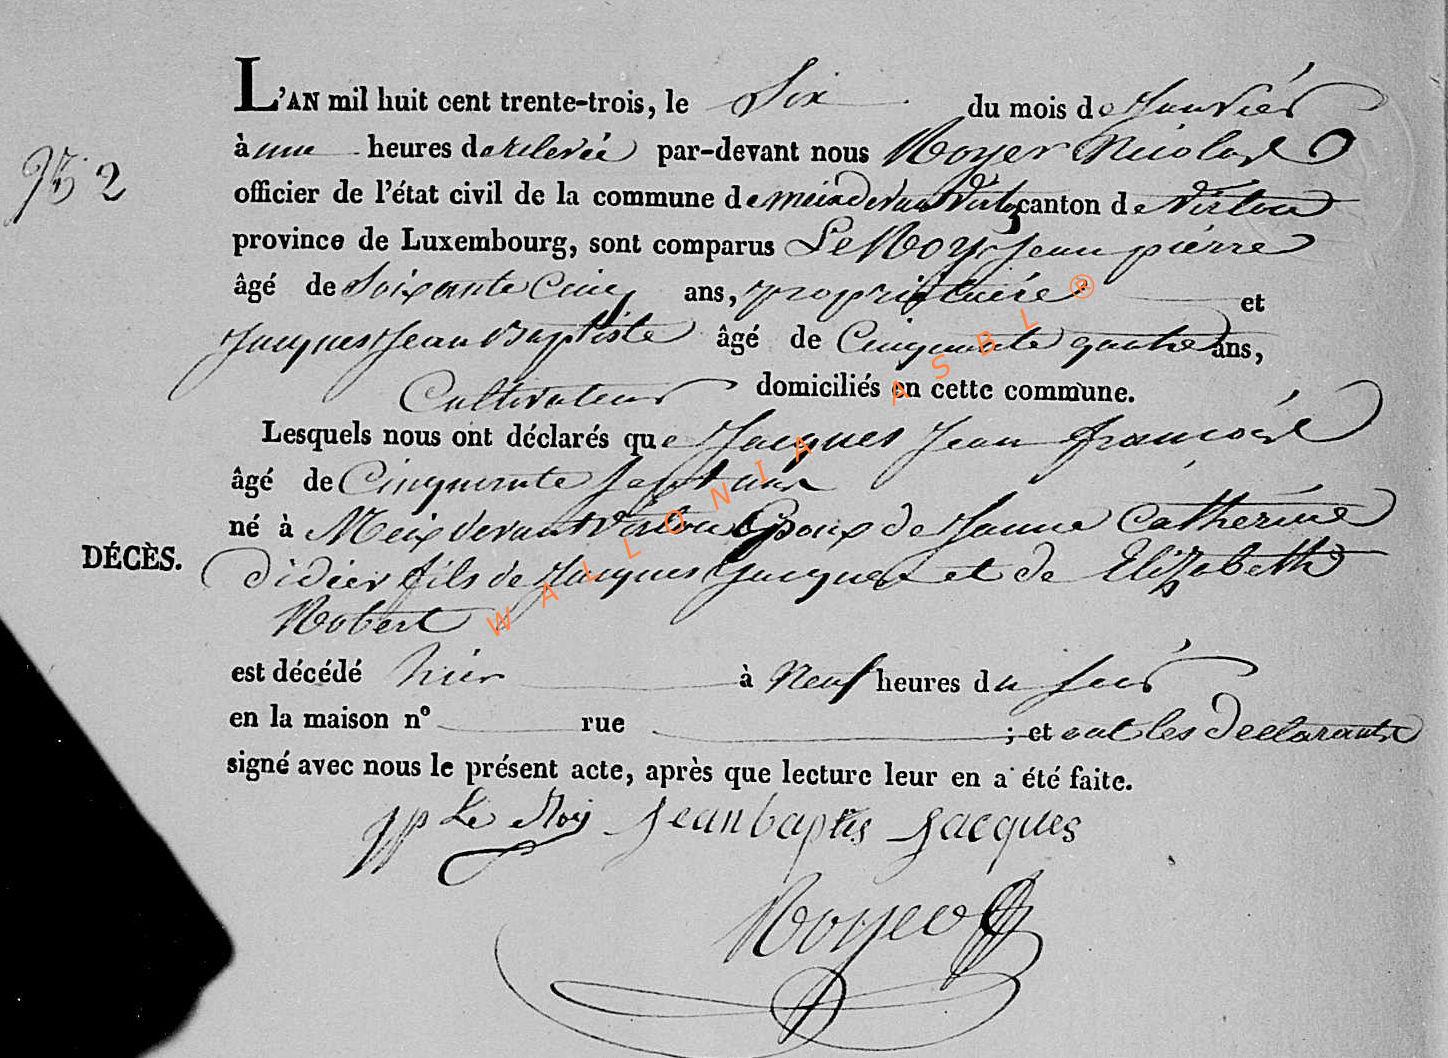 L'AN mil huit cent trente-trois, le Six du mois de Janvier
à une heures de relevée par-devant nous Royer Nicolas
N° 2
officier de l'état civil de la commune de meix devant Virton canton de Virton
province de Luxembourg, sont comparus Le Roy Jean pierre
âgé de Soixante Cinq ans, propriétaire et
Jacques Jean Baptiste âgé de Cinquante quatre ans,
Cultivateur domiciliés en cette commune.
Lesquels nous ont déclarés que Jacques Jean francois
âgé de Cinquante Sept ans
né à Meix devant Virton Epoux de Janne Catherine
DÉCÈS.
Didier fils de Jacques Jacques et de Elizabeth
Robert
est décédé hier à Neuf heures du soir
en la maison n° rue ; et ont les Declarants
signé avec nous le présent acte, après que lecture leur en a été faite.
jp Le Roy Jean baptis Jacques
Royer
WALLONIA ASBL ®